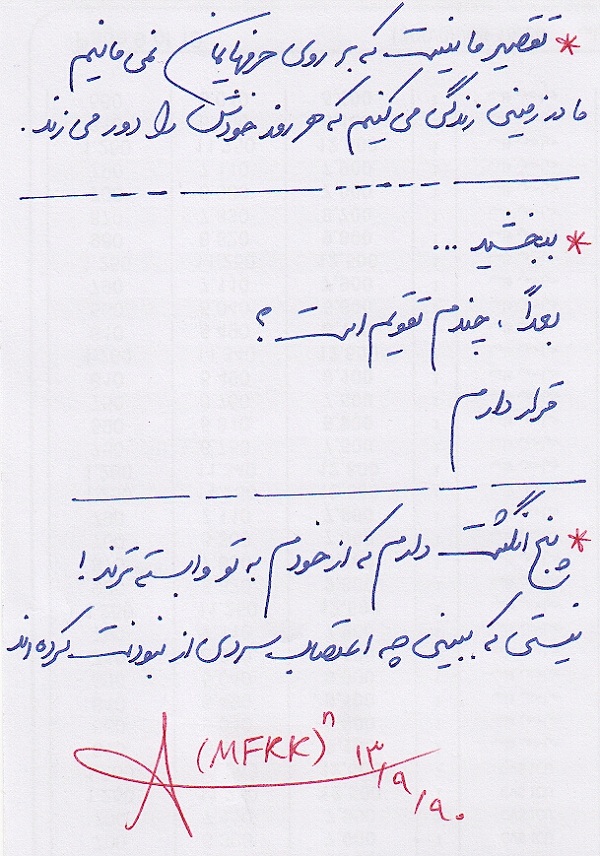 * تقصیر ما نیست که بر روی حرفهایمان نمی مانیم
ما در زمینی زندگی می کنیم که هر روز خودش را دور می زند.
* ببخشید ...
بعداً، چندم تقویم است؟
قرار دارم
* پنج انگشت دارم که از خودم به تو وابسته ترند!
نیستی که ببینی چه اعتصاب سردی از نبودنت کرده اند
(MFKK)ⁿ ۱۳/۹/۹۰